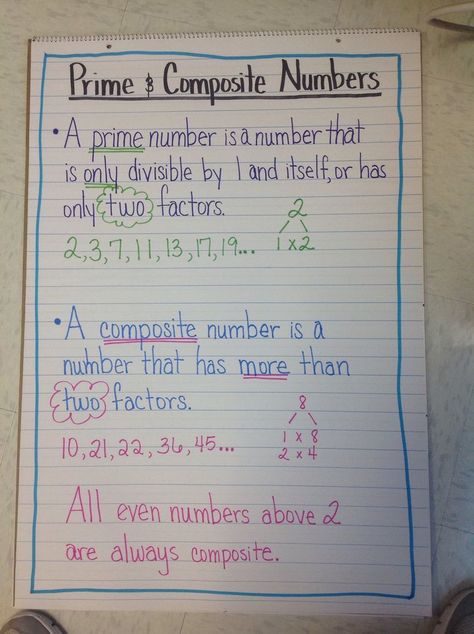 Prime & Composite Numbers
• A prime number is a number that
is only divisible by 1 and itself, or has
only two factors.
2
2, 3, 7, 11, 13, 17, 19... 1 x 2
• A composite number is a
number that has more than
two factors.
8
1 x 8
10, 21, 22, 36, 45...
2 x 4
All even numbers above 2
are always composite.